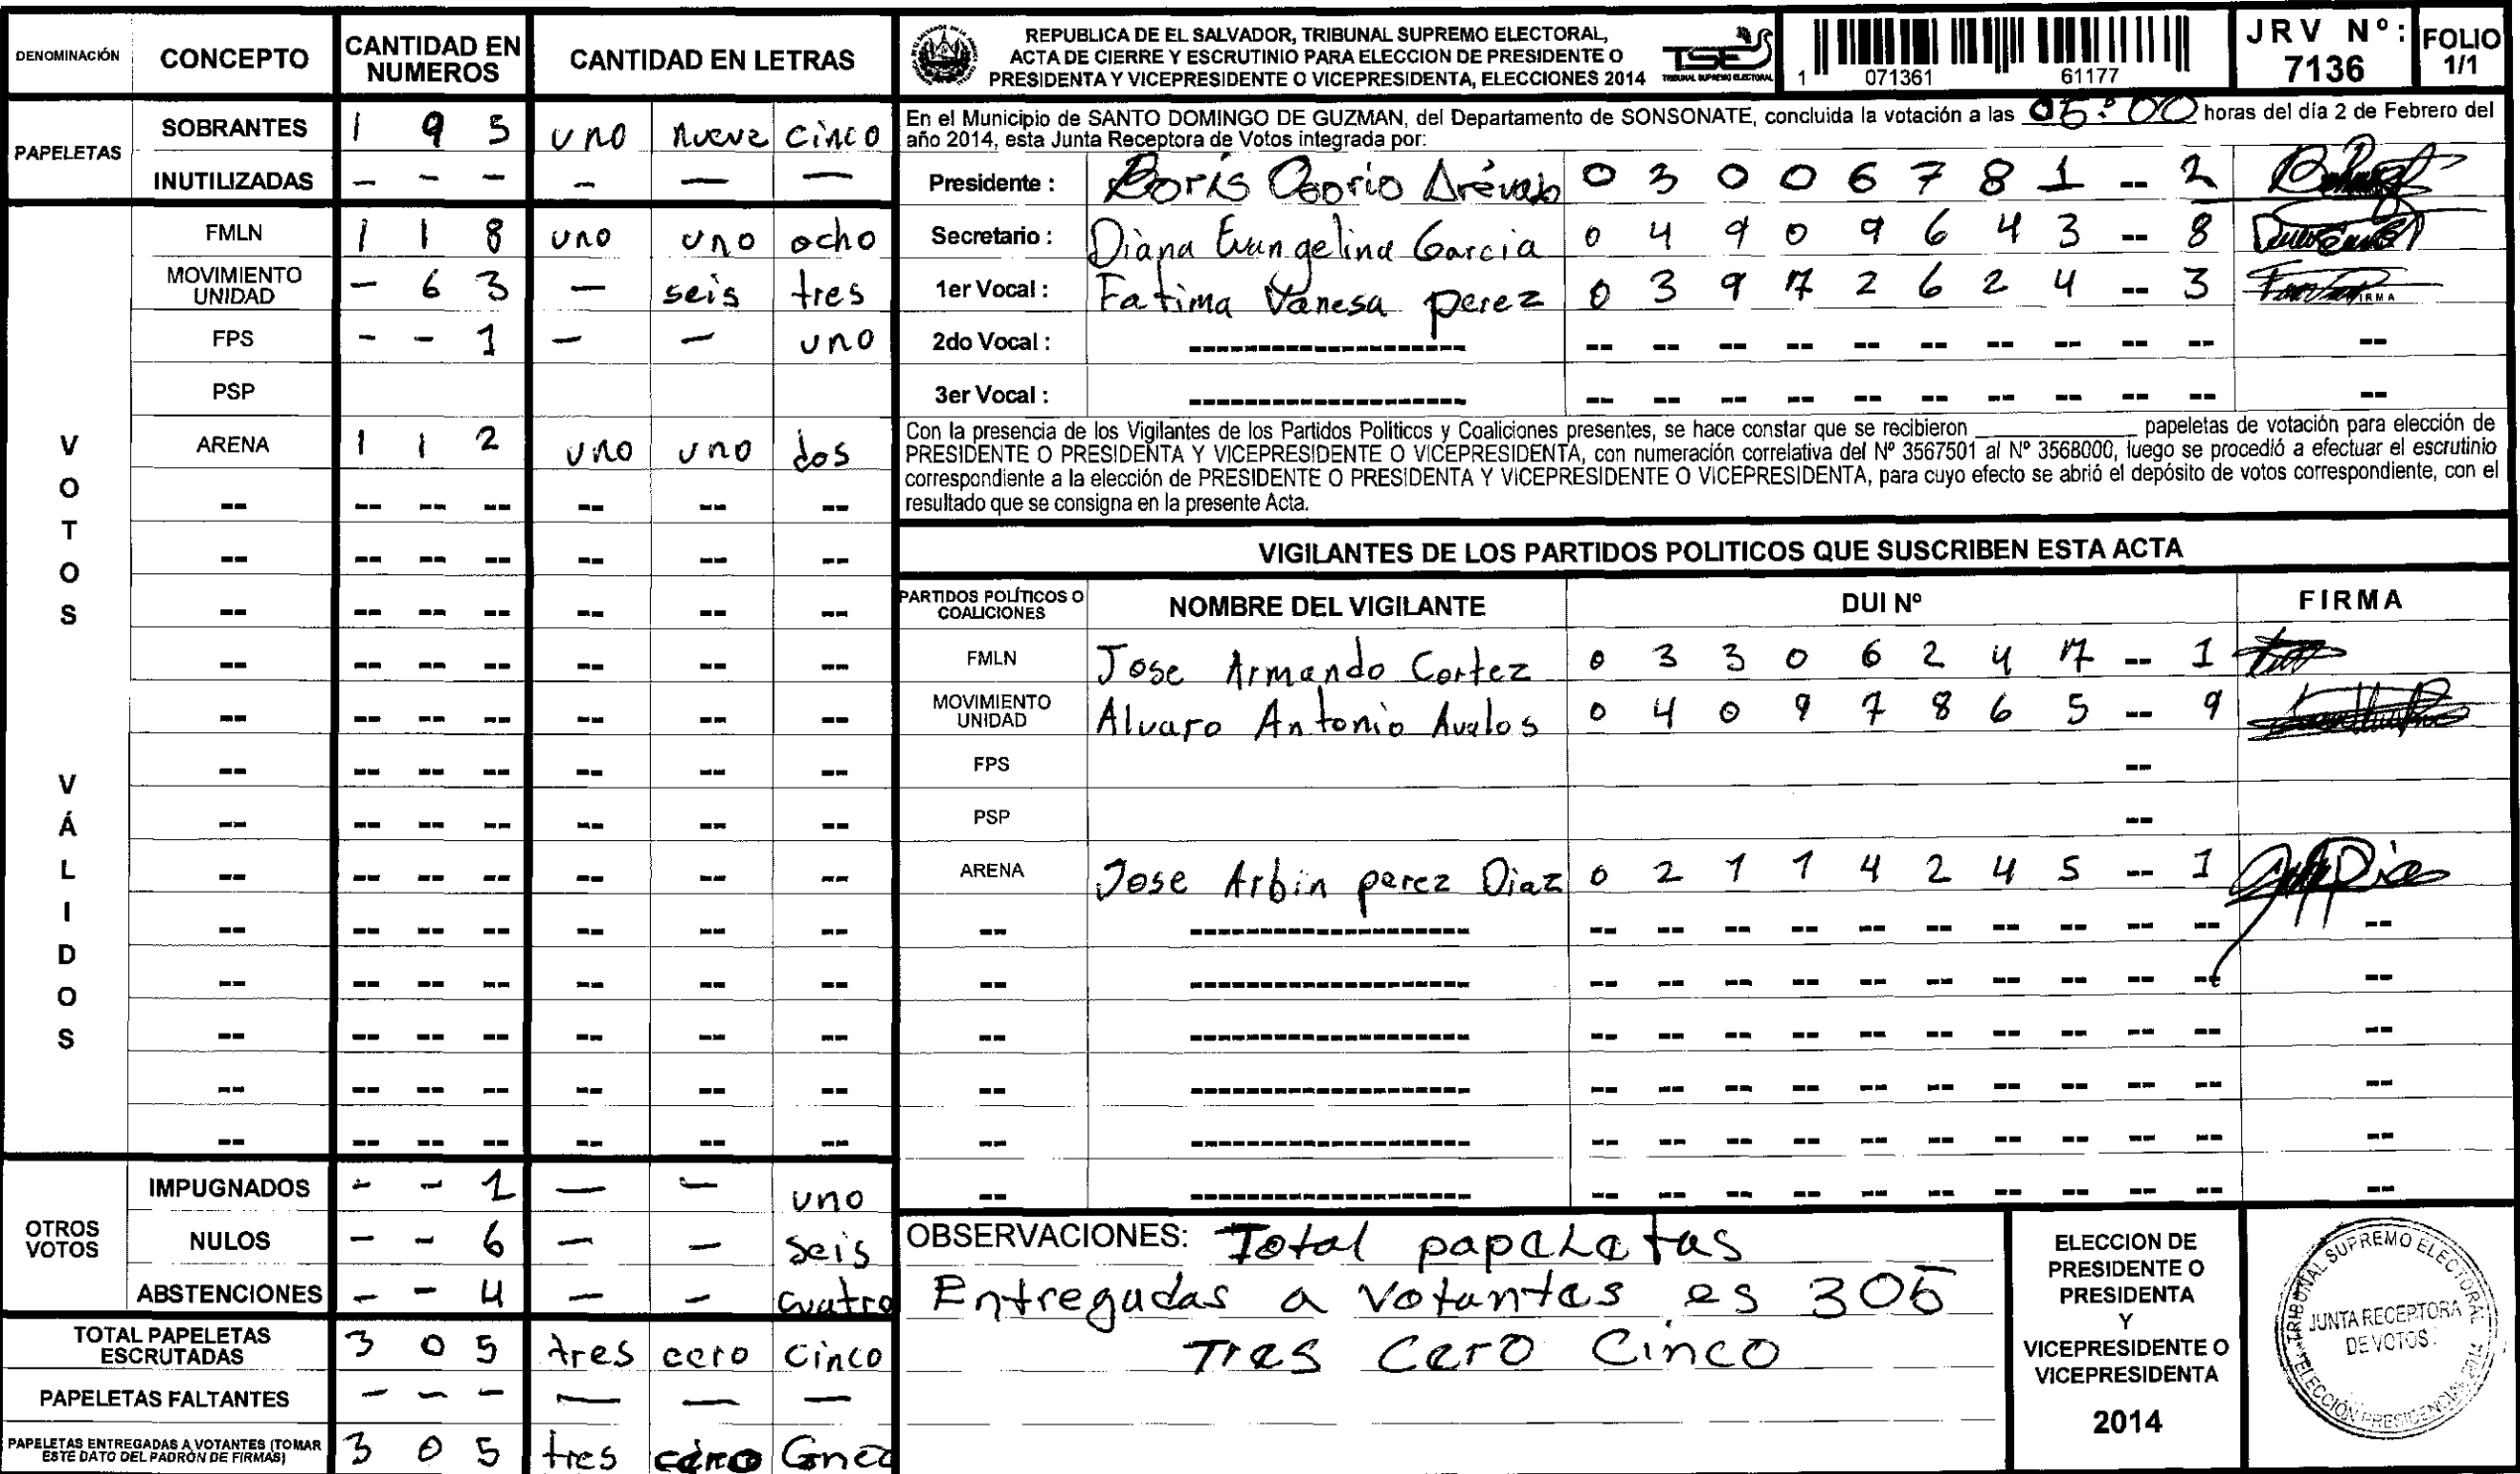 DENOMINACIÓN CONCEPTO CANTIDAD EN NUMEROS CANTIDAD EN LETRAS
PAPELETAS
SOBRANTES 1 9 5 uno nueve cinco
INUTILIZADAS - - - - - -
VOTOS VÁLIDOS
FMLN 1 1 8 uno uno ocho
MOVIMIENTO UNIDAD - 6 3 - seis tres
FPS - - 1 - - uno
PSP
ARENA 1 1 2 uno uno dos
OTROS VOTOS
IMPUGNADOS - - 1 - - uno
NULOS - - 6 - - seis
ABSTENCIONES - - 4 - - cuatro
TOTAL PAPELETAS ESCRUTADAS 3 0 5 tres cero cinco
PAPELETAS FALTANTES - - - - - -
PAPELETAS ENTREGADAS A VOTANTES (TOMAR ESTE DATO DEL PADRÓN DE FIRMAS) 3 0 5 tres cero
REPUBLICA DE EL SALVADOR, TRIBUNAL SUPREMO ELECTORAL,
ACTA DE CIERRE Y ESCRUTINIO PARA ELECCION DE PRESIDENTE O
PRESIDENTA Y VICEPRESIDENTE O VICEPRESIDENTA, ELECCIONES 2014
TSE
TRIBUNAL SUPREMO ELECTORAL
1 071361 61177
JRV Nº: 7136
FOLIO 1/1
En el Municipio de SANTO DOMINGO DE GUZMAN, del Departamento de SONSONATE, concluida la votación a las 05:00 horas del día 2 de Febrero del
año 2014, esta Junta Receptora de Votos integrada por:
Presidente : Boris Osorio Arévalo 0 3 0 0 6 7 8 1 -- 2
Secretario : Diana Evangelina Garcia 0 4 9 0 9 6 4 3 -- 8
1er Vocal : Fatima Vanesa perez 0 3 9 7 2 6 2 4 -- 3
2do Vocal :
3er Vocal :
Con la presencia de los Vigilantes de los Partidos Politicos y Coaliciones presentes, se hace constar que se recibieron ________ papeletas de votación para elección de
PRESIDENTE O PRESIDENTA Y VICEPRESIDENTE O VICEPRESIDENTA, con numeración correlativa del Nº 3567501 al Nº 3568000, luego se procedió a efectuar el escrutinio
correspondiente a la elección de PRESIDENTE O PRESIDENTA Y VICEPRESIDENTE O VICEPRESIDENTA, para cuyo efecto se abrió el depósito de votos correspondiente, con el
resultado que se consigna en la presente Acta.
VIGILANTES DE LOS PARTIDOS POLITICOS QUE SUSCRIBEN ESTA ACTA
PARTIDOS POLÍTICOS O COALICIONES NOMBRE DEL VIGILANTE DUI Nº FIRMA
FMLN Jose Armando Cortez 0 3 3 0 6 2 4 7 -- 1
MOVIMIENTO UNIDAD Alvaro Antonio Avalos 0 4 0 9 7 8 6 5 -- 9
FPS --
PSP --
ARENA Jose Arbin perez Diaz 0 2 1 1 4 2 4 5 -- 1
OBSERVACIONES: Total papeletas
Entregadas a votantes es 305
Tres Cero Cinco
ELECCION DE
PRESIDENTE O
PRESIDENTA
Y
VICEPRESIDENTE O
VICEPRESIDENTA
2014
TRIBUNAL SUPREMO ELECTORAL
JUNTA RECEPTORA
DE VOTOS
ELECCIÓN PRESIDENCIAL 2014